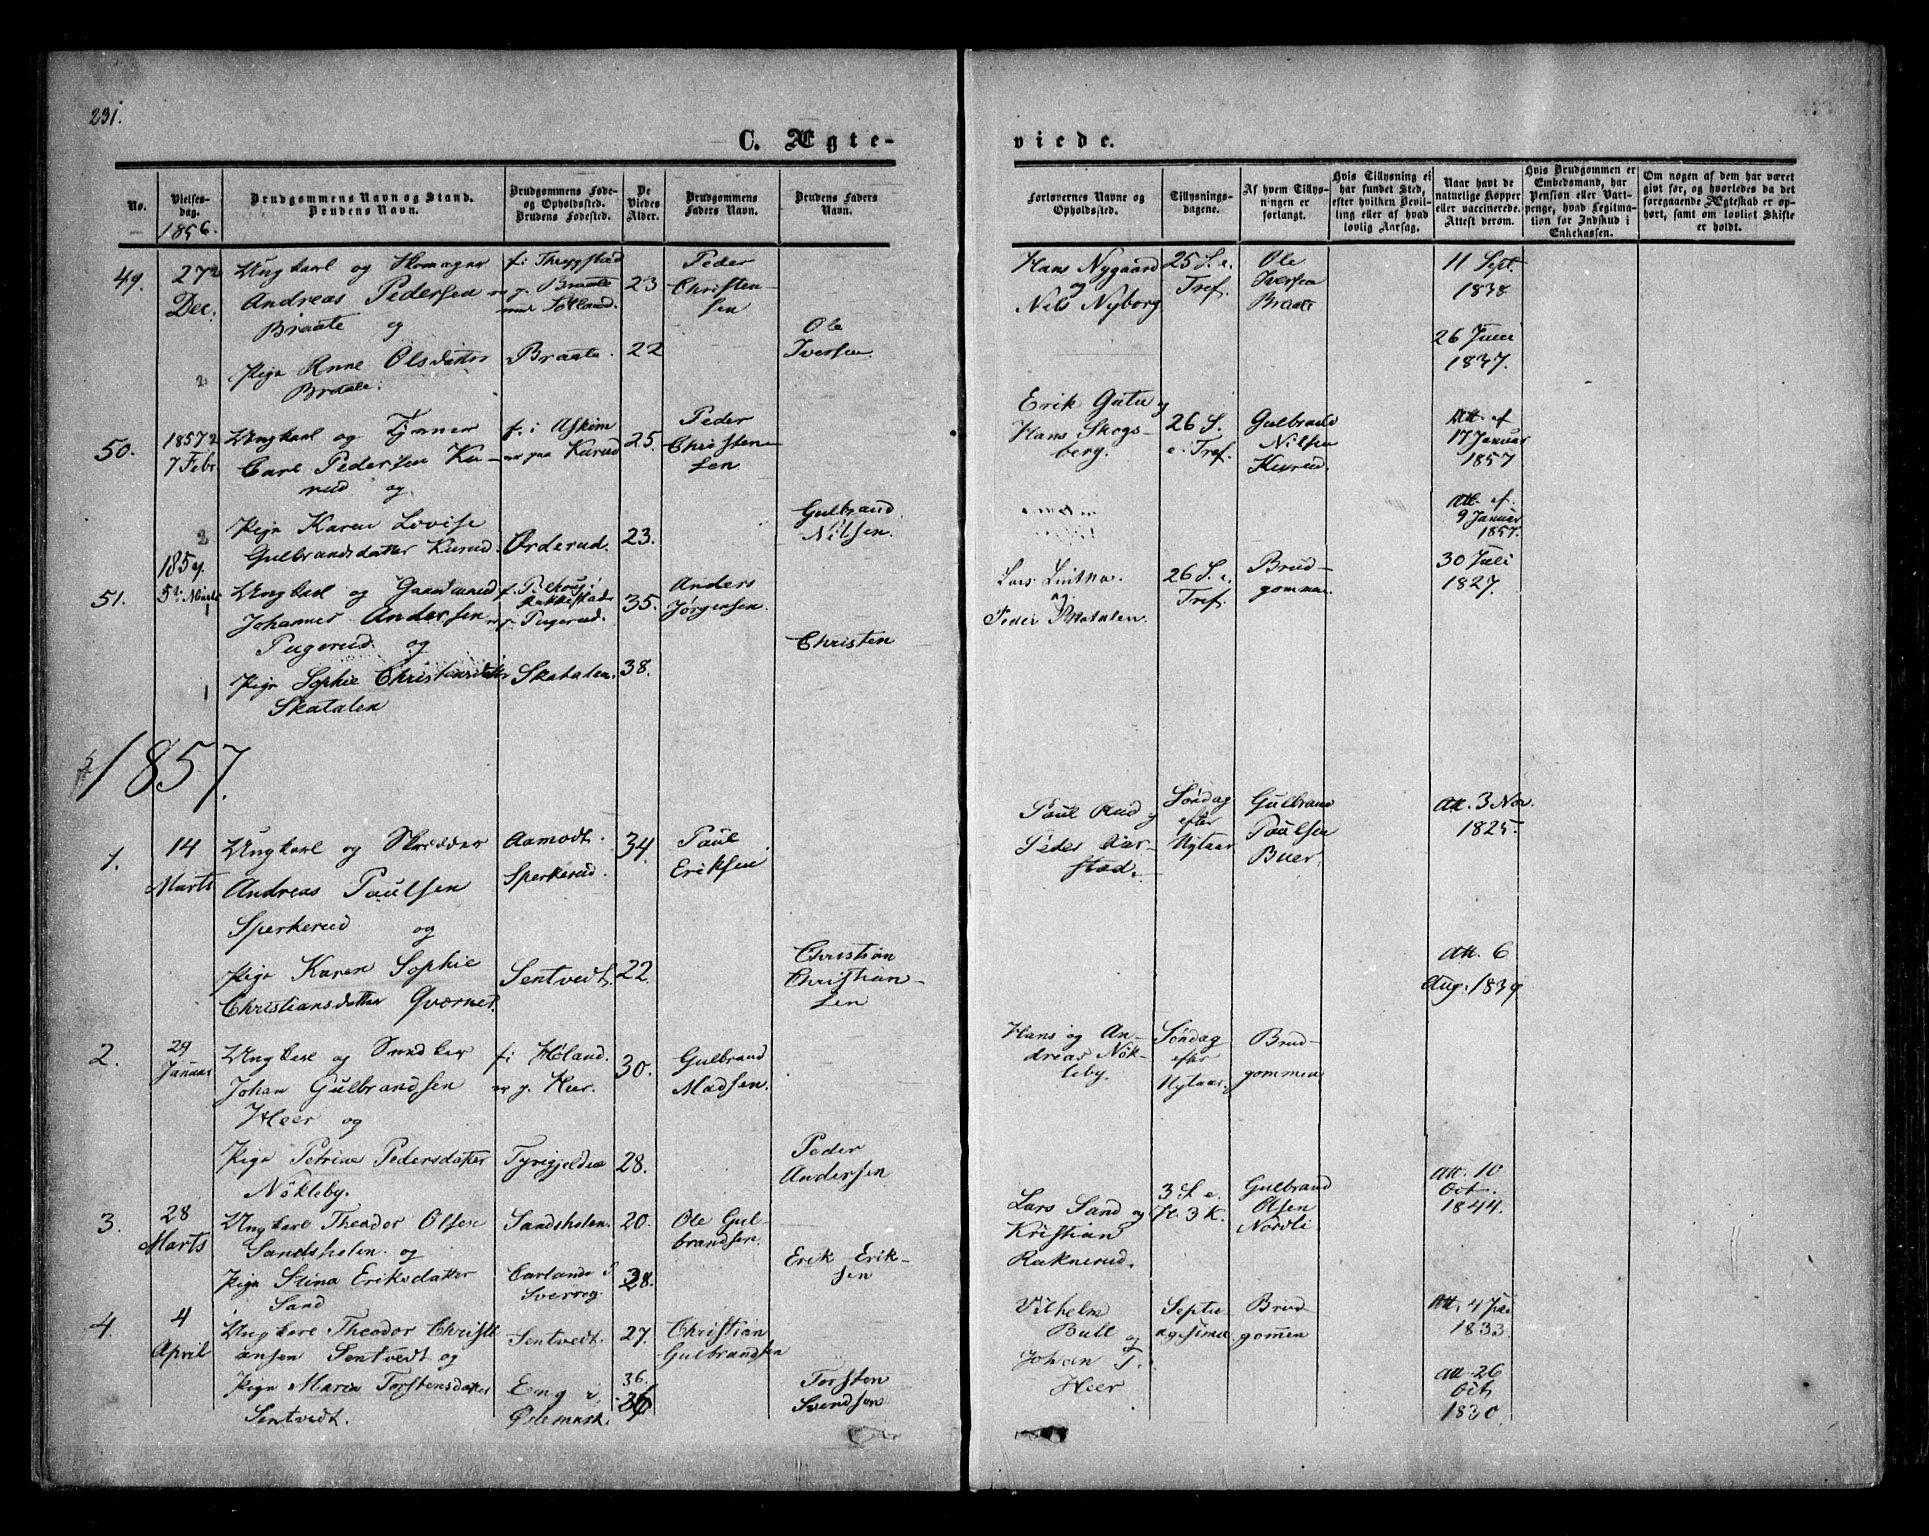 231.
C. Ægte-
viede.
No.
Vielses-
dag.
1856.
Brudgommens Navn og Stand.
Brudens Navn.
Brudgommens Føde-
og Opholdssted.
Brudens Fødested.
De
Viedes
Alder.
Brudgommens
Faders Navn.
Brudens Faders
Navn.
Forlovernes Navne og
Opholdssted.
Tillysnings-
dagene.
Af hvem Tillys-
ningen er
forlangt.
Hvis Tillysning ei
har fundet Sted,
efter hvilken Bevil-
ling eller af hvad
lovlig Aarsag.
Naar havt de
naturlige Kopper
eller vaccinerede.
Attest derom.
Hvis Brudgommen er
Embedsmand, har
Pension eller Vart-
penge, hvad Legitima-
tion for Indskud i
Enkekassen.
Om nogen af dem har været
gift før, og hvorledes da det
foregaaende Ægteskab er op-
hørt, samt om lovligt Skifte
er holdt.
49.
27
Dec.
Ungkarl og
Andreas Pedersen
Braate og
Pige Anne Olsdatter
Braate.
Braate
Braate.
23
22
Peder
Christen-
sen
Ole
Iversen
Hans Nygaard
og
Nils Nyborg
25 S. e.
Tref.
Ole
Iversen
Braate
11 Sept.
1838
26 Juni
1837.
50.
1857
7 Febr
Ungkarl og
Carl Pedersen Ku-
rud og
Pige Karen Lovise
Gulbrandsdatter Kurud
f. i Askim
er paa Kurud
Orderud.
25.
23.
Peder
Christen-
sen
Gulbrand
Nilsen
Erik Gutu og
Hans Skogs-
berg.
26 S.
e. Tref.
Gulbrand
Nilsen
Kurud.
Att. af
17 Januar
1857
Att. af
9 Januar
1857.
51.
Ungkarl og Gaardmand
Johannes Andersen
Pugerud og
Pige Sophie
Skatalen
Rakkestad
Pugerud.
Skatalen.
35.
38.
Anders
Jørgensen
Christen
Lars
og
Peder Skatalen.
26 S. e.
Tref.
Brud-
gommen
30 Juli
1827.
1857.
1.
14
Marts
Ungkarl og Skrædder
Andreas Paulsen
Sperkerud og
Pige Karen Sophie
Christiansdatter Qværner.
Aamodt.
Sperkerud.
Sentvedt.
34.
22.
Paul
Eriksen
Christian
Christian-
sen
Paul Rud og
Peder
stad.
Søndag
efter
Nytaar
Gulbrand
Paulsen
Buer.
Att. 3 Nov.
1825.
Att. 6
Aug. 1839
2.
29
Januar
Ungkarl og Snedker
Johan Gulbrandsen
Heer og
Pige Petrine Pedersdatter
Nökleby.
f. i Høland.
er p. Heer.
30.
28.
Gulbrand
Madsen.
Peder
Andersen
Hans og An-
dreas Nök-
leby.
Søndag
efter
Nytaar.
Brud-
gommen
3.
28
Marts
Ungkarl Theodor Olsen
Sandsholen og
Pige Stina Eriksdatter
Sand
Sandsholen.
Carlanda i
Sverrig
20.
28.
Ole Gul-
brandsen.
Erik Erik-
sen
Lars Sand og
Kristian
Raknerud.
3 S. e.
H. 3 K.
Gulbrand
Olsen
Nordli
Att. 10
Oct.
1844.
4.
4
April
Ungkarl Theodor Christi-
ansen Sentvedt og
Pige Maria Torstensdatter
Sentvedt.
Sentvedt.
Eng i
Ødemark.
27.
36.
Christian
Gulbrandsen
Torsten
Svendsen
Vilhelm
Bull og
Johan T.
Heer
Septu
agesima
Brud
gommen
Att. 4
1833.
Att. 26
Oct
1830.